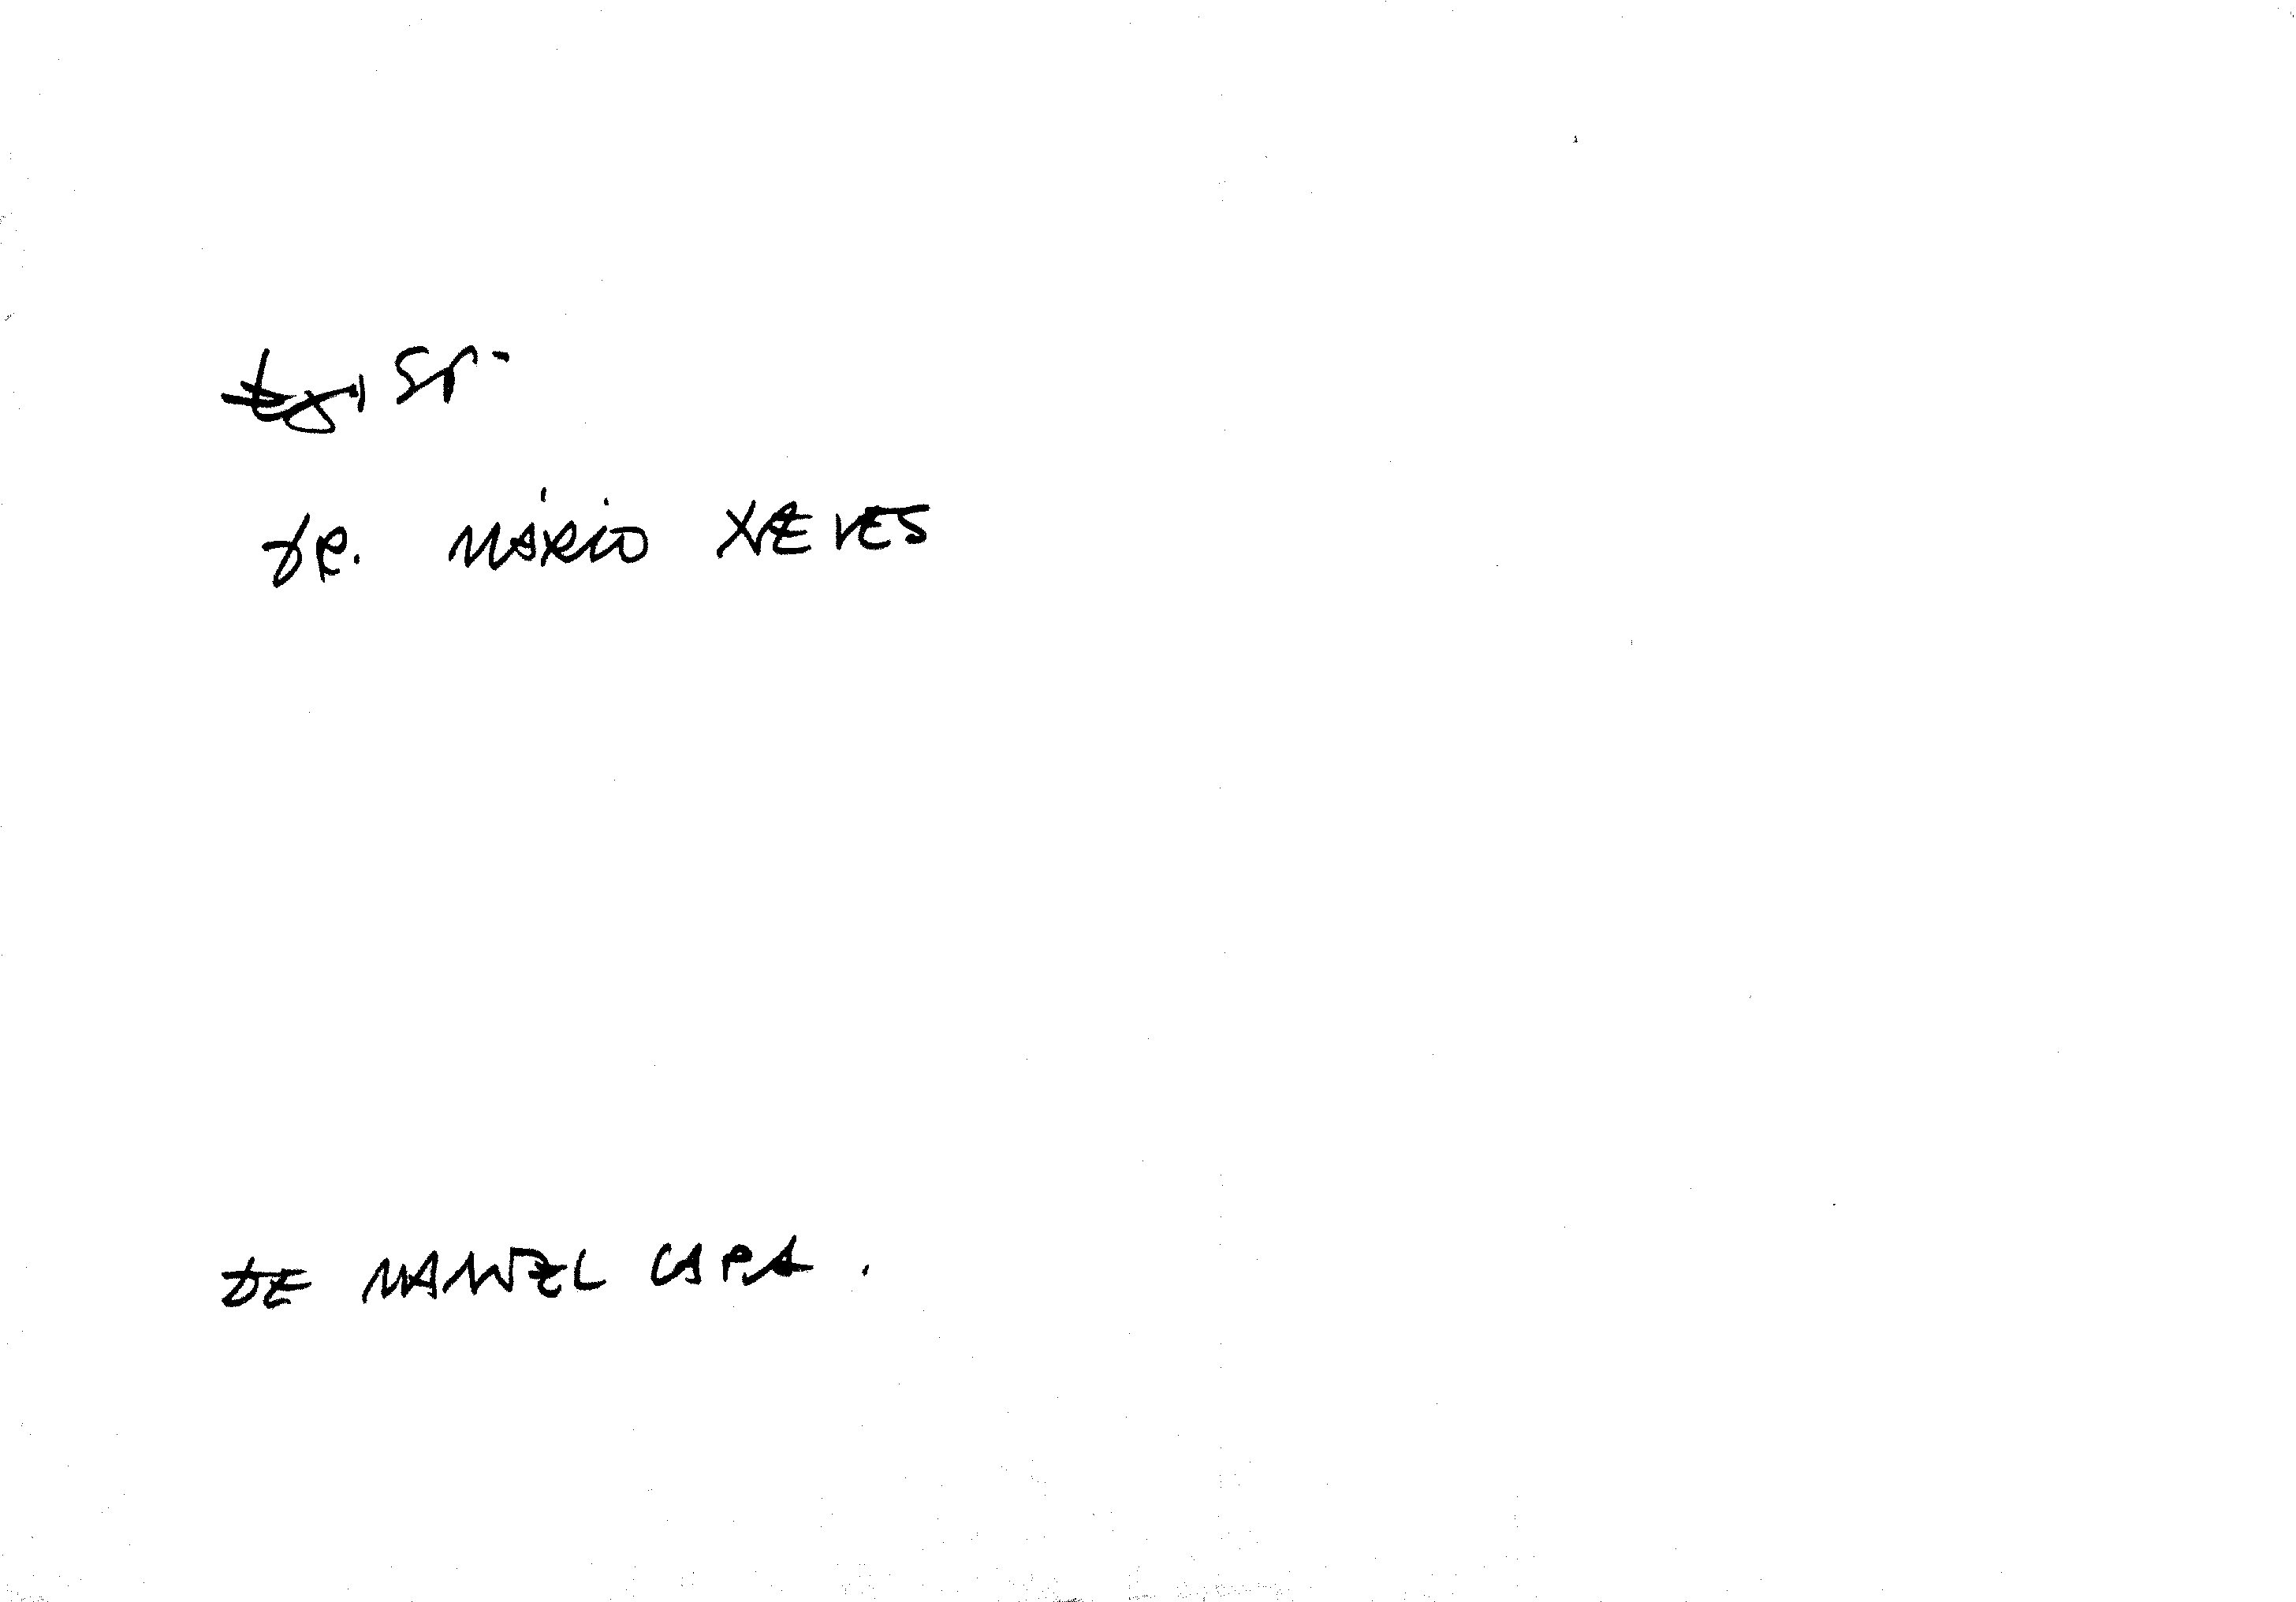 Ex.º Sr.
DR. MÁRIO NEVES
DE MANUEL CAPA.